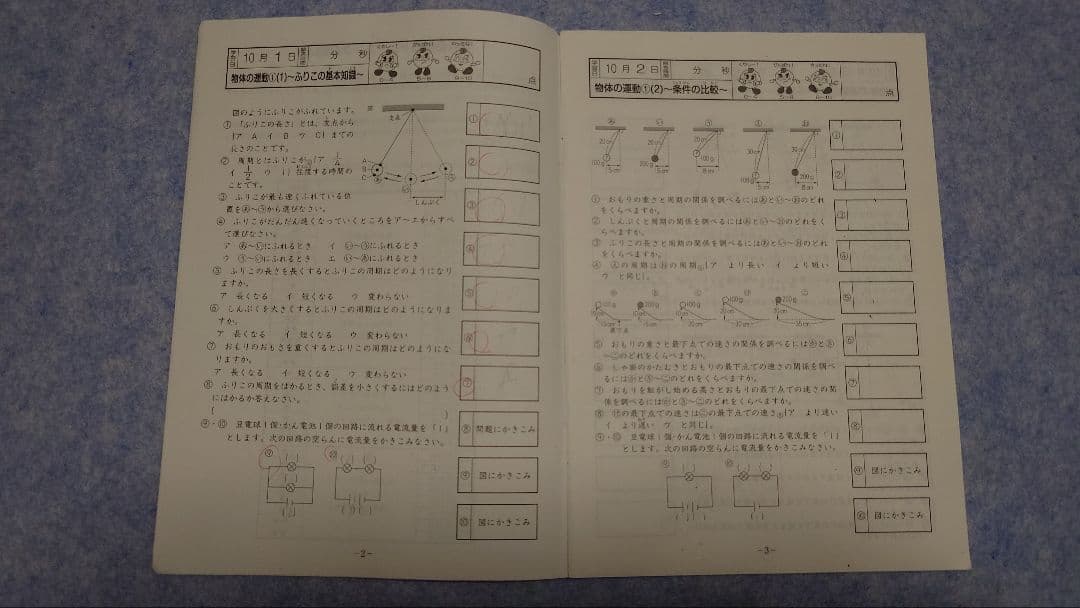 10月1日
分 秒
点
物体の運動①(1)~ふりこの基本知識~
図のようにふりこがふれています。
① 「ふりこの長さ」とは、支点から
{ア A イ B ウ C}までの
長さのことです。
② 周期とはふりこが
イ 1/2 ウ 1}往復する時間の
ことです。
③ ふりこが最も速くふれている位
置をあ~うから選びなさい。
④ ふりこがだんだん速くなっていくところをア~エからすべ
て選びなさい。
ア あ~いにふれるとき イ い~うにふれるとき
ウ う~いにふれるとき エ い~あにふれるとき
⑤ ふりこの長さを長くするとふりこの周期はどのようになり
ますか。
ア 長くなる イ 短くなる ウ 変わらない
⑥ しんぷくを大きくするとふりこの周期はどのようになりま
すか。
ア 長くなる イ 短くなる ウ 変わらない
⑦ おもりのおもさを重くするとふりこの周期はどのようにな
りますか。
ア 長くなる イ 短くなる ウ 変わらない
⑧ ふりこの周期をはかるとき、誤差を小さくするにはどのよう
にはかるか答えなさい。
⑨・⑩ 豆電球1個・かん電池1個の回路に流れる電流量を「1」
とします。次の回路の空らんに電流量をかきこみなさい。
支点
A
B
C
しんぷく
①
②
③
④
⑤
⑥
⑦
⑧ 問題にかきこみ
⑨ 図にかきこみ
⑩ 図にかきこみ
⑨ ⑩
-2-
10月2日
分 秒
点
物体の運動①(2)~条件の比較~
20cm 20cm 20cm 30cm 30cm
100g 200g 100g 100g 200g
5cm 5cm 8cm 5cm 8cm
① おもりの重さと周期の関係を調べるにはあとい~おのどれ
をくらべますか。
② しんぷくと周期の関係を調べるにはあとい~おのどれをく
らべますか。
③ ふりこの長さと周期の関係を調べるにはあとい~おのどれ
をくらべますか。
④ えの周期はおの周期{ア より長い イ より短い
ウ と同じ}。
100g 200g 100g 100g 200g
最下点
⑤ おもりの重さと最下点での速さの関係を調べるには
のどれをくらべますか。
⑥ しゃ面のかたむきとおもりの最下点での速さの関係を調べ
るには のどれをくらべますか。
⑦ おもりを転がし始める高さとおもりの最下点での速さの関
係を調べるには のどれをくらべますか。
⑧ の最下点での速さは の最下点での速さ{ア より速い
イ より遅い ウ と同じ}。
⑨・⑩ 豆電球1個・かん電池1個の回路に流れる電流量を「1」
とします。次の回路の空らんに電流量をかきこみなさい。
①
②
③
④
⑤
⑥
⑦
⑧
図にかきこみ
図にかきこみ
⑨ ⑩
-3-